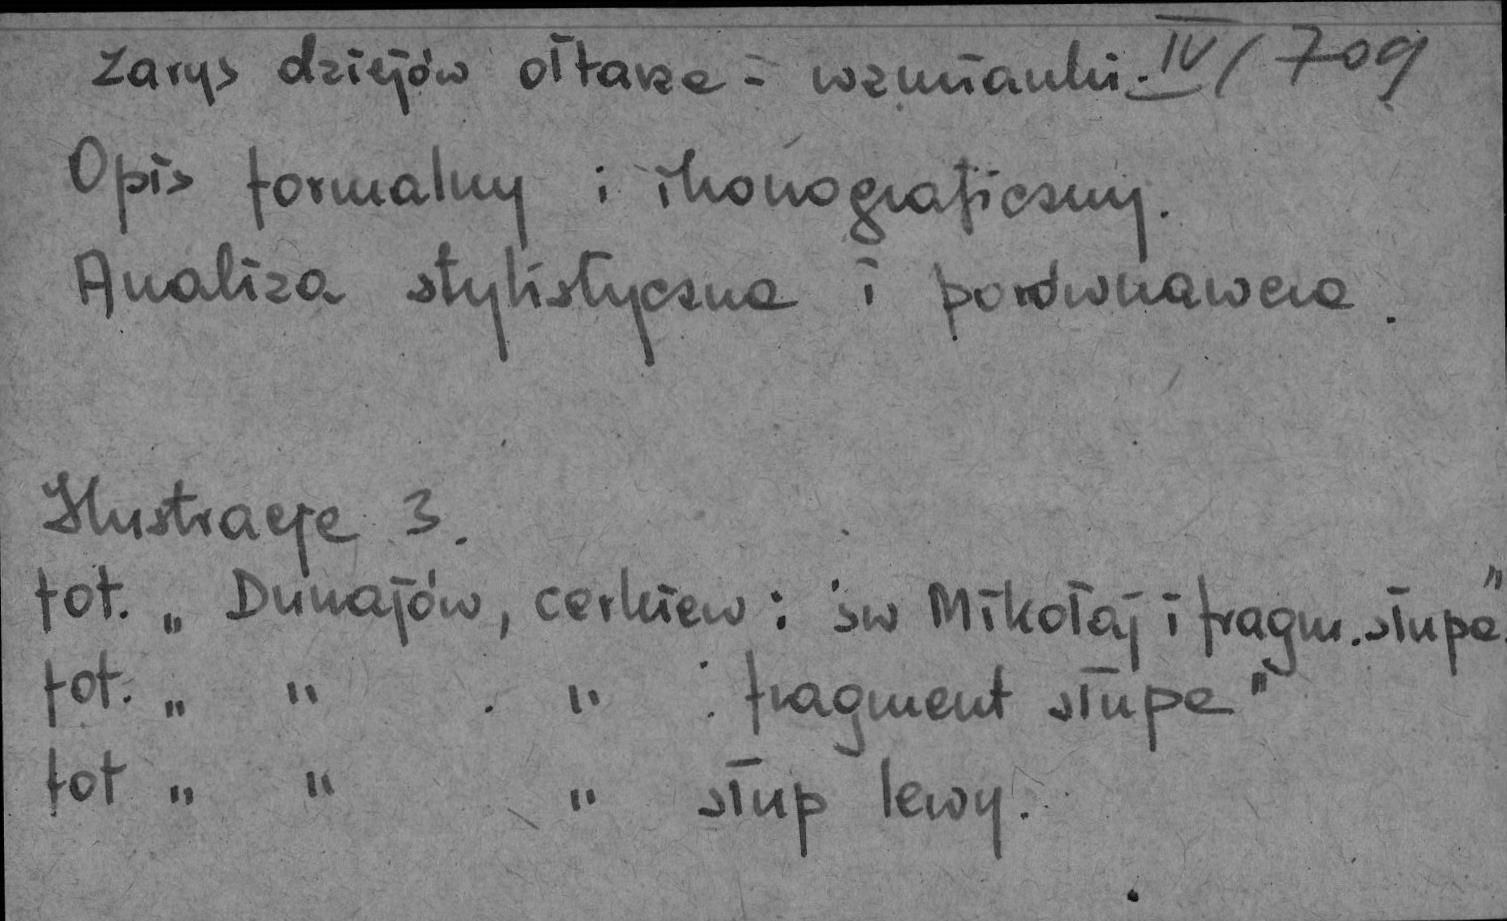 Zarys dziejów ołtarza - wzmianki. IV/709
Opis formalny i ikonograficzny.
Analiza stylistyczna i porównawcza.
Ilustracje 3.
fot. „ Dunajów, cerkiew : św Mikołaj i fragm. słupa"
fot. „ " . " : fragment słupa"
fot „ " " słup lewy.